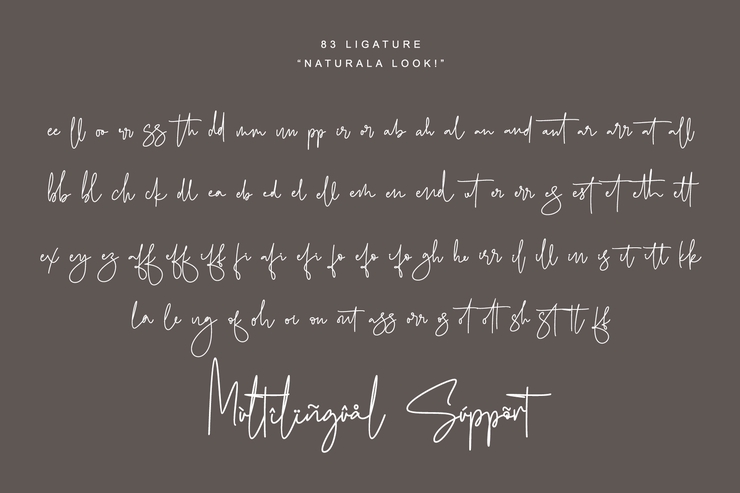 83 LIGATURE
“NATURALA LOOK!”
ee ll oo rr ss th dd mm nn pp ir or ab ah al an and ant ar arr at all
bb bl ch ck dl ea eb ed el ell em en end et er err es est et eth ett
ex ey ez aff eff iff fi afi efi fo efo ifo gh he irr il ill in is it itt kk
la le ng of oh oi on ont ass orr os ot ott sh st tt ff
Mùltîlïñgûål Súppørt